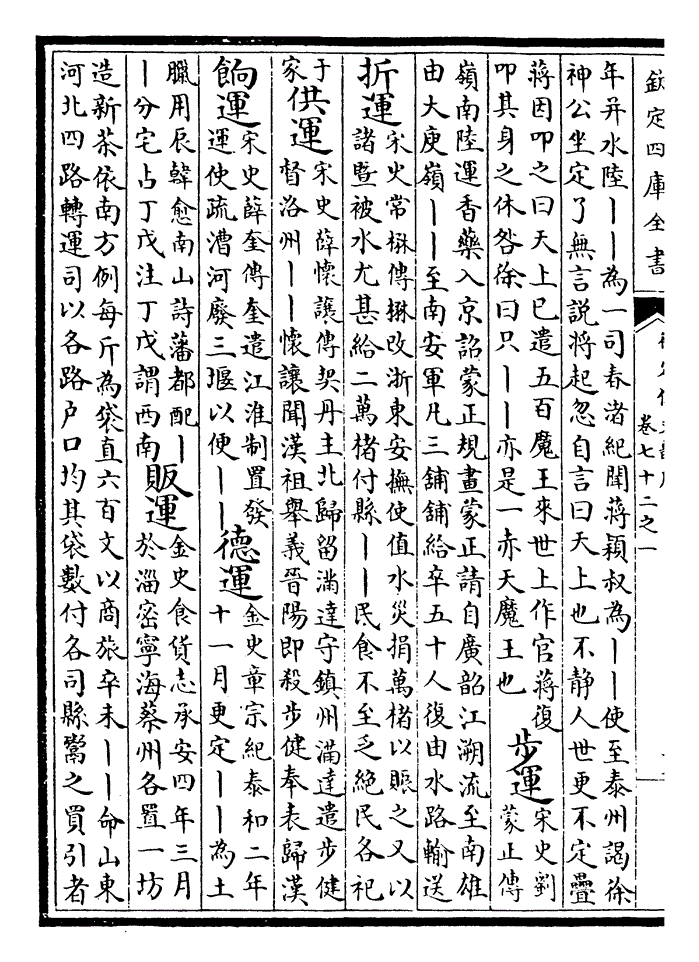 欽定四庫全書
卷七十二之一
年并水陸丨丨為一司春渚紀聞蔣穎叔為丨丨使至泰州謁徐
神公坐定了無言說將起忽自言曰天上也不静人世更不定疊
蔣因叩之曰天上已遣五百魔王來世上作官蔣復
叩其身之休咎徐曰只丨丨亦是一赤天魔王也
步運
宋史劉
蒙正傳
嶺南陸運香藥入京詔蒙正規畫蒙正請自廣韶江溯流至南雄
由大庾嶺丨丨至南安軍凡三鋪鋪給卒五十人復由水路輸送
折運
宋史常楙傳楙改浙東安撫使值水災捐萬楮以賑之又以
諸暨被水尤甚給二萬楮付縣丨丨民食不至乏絶民各祀
于
家
供運
宋史薛懷讓傳契丹主北歸留滿達守鎮州滿達遣步健
督洛州丨丨懷讓聞漢祖舉義晉陽即殺步健奉表歸漢
餉運
宋史薛奎傳奎遣江淮制置發
運使疏漕河廢三堰以便丨丨
德運
金史章宗紀泰和二年
十一月更定丨丨為土
臘用辰韓愈南山詩藩都配丨
丨分宅占丁戊注丁戊謂西南
販運
金史食貨志承安四年三月
於淄密寧海蔡州各置一坊
造新茶依南方例每斤為袋直六百文以商旅卒未丨丨命山東
河北四路轉運司以各路户口均其袋數付各司縣鬻之買引者